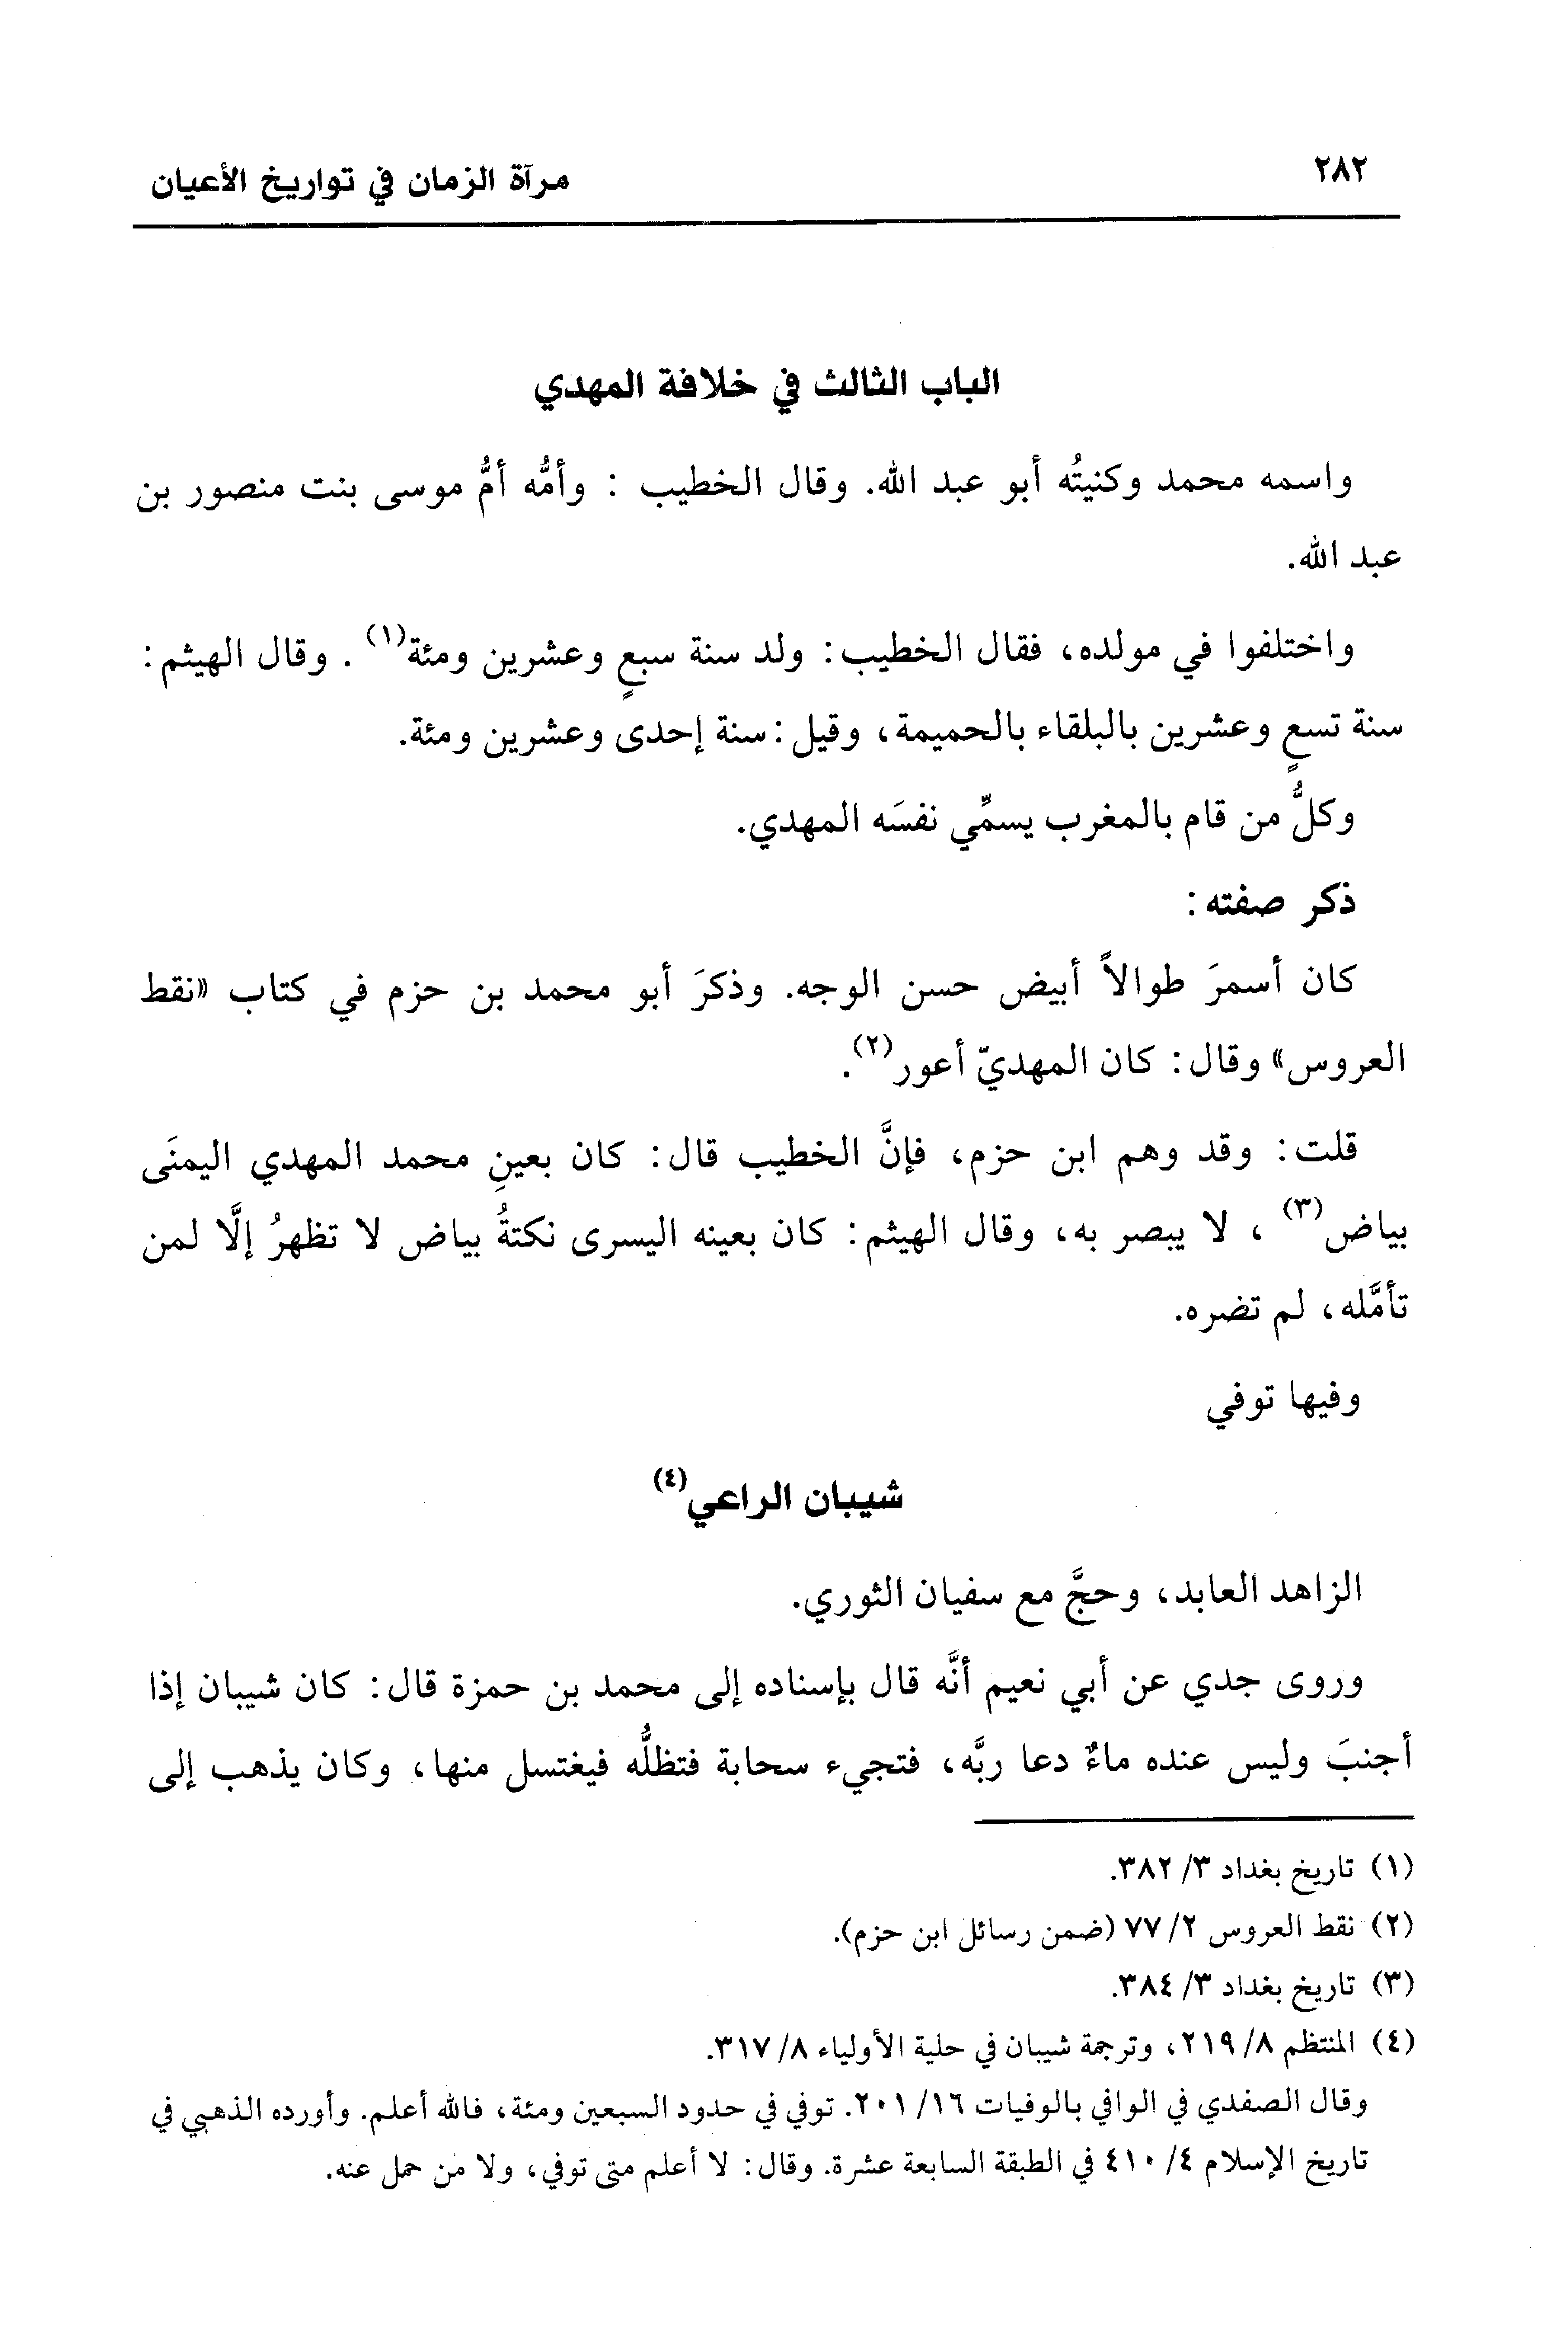 ٢٨٢
مرآة الزمان في تواريخ الأعيان
الباب الثالث في خلافة المهدي
واسمه محمد وكنيتُه أبو عبد الله. وقال الخطيب : وأمُّه أمُّ موسى بنت منصور بن
عبد الله.
واختلفوا في مولده، فقال الخطيب: ولد سنة سبعٍ وعشرين ومئة(١) . وقال الهيثم:
سنة تسعٍ وعشرين بالبلقاء بالحميمة، وقيل: سنة إحدى وعشرين ومئة.
وكلُّ من قام بالمغرب يسمِّي نفسَه المهدي.
ذكر صفته:
كان أسمرَ طوالاً أبيض حسن الوجه. وذكرَ أبو محمد بن حزم في كتاب «نقط
العروس» وقال: كان المهديّ أعور(٢).
قلت: وقد وهم ابن حزم، فإنَّ الخطيب قال: كان بعينِ محمد المهدي اليمنَى
بياض(٣) ، لا يبصر به، وقال الهيثم: كان بعينه اليسرى نكتةُ بياض لا تظهرُ إلَّا لمن
تأمَّله، لم تضره.
وفيها توفي
شيبان الراعي(٤)
الزاهد العابد، وحجَّ مع سفيان الثوري.
وروى جدي عن أبي نعيم أنَّه قال بإسناده إلى محمد بن حمزة قال: كان شيبان إذا
أجنبَ وليس عنده ماءٌ دعا ربَّه، فتجيء سحابة فتظلُّه فيغتسل منها، وكان يذهب إلى
(١) تاريخ بغداد ٣/ ٣٨٢.
(٢) نقط العروس ٢/ ٧٧ (ضمن رسائل ابن حزم).
(٣) تاريخ بغداد ٣/ ٣٨٤.
(٤) المنتظم ٨/ ٢١٩، وترجمة شيبان في حلية الأولياء ٨/ ٣١٧.
وقال الصفدي في الوافي بالوفيات ١٦/ ٢٠١. توفي في حدود السبعين ومئة، فالله أعلم. وأورده الذهبي في
تاريخ الإسلام ٤/ ٤١٠ في الطبقة السابعة عشرة. وقال: لا أعلم متى توفي، ولا من حمل عنه.